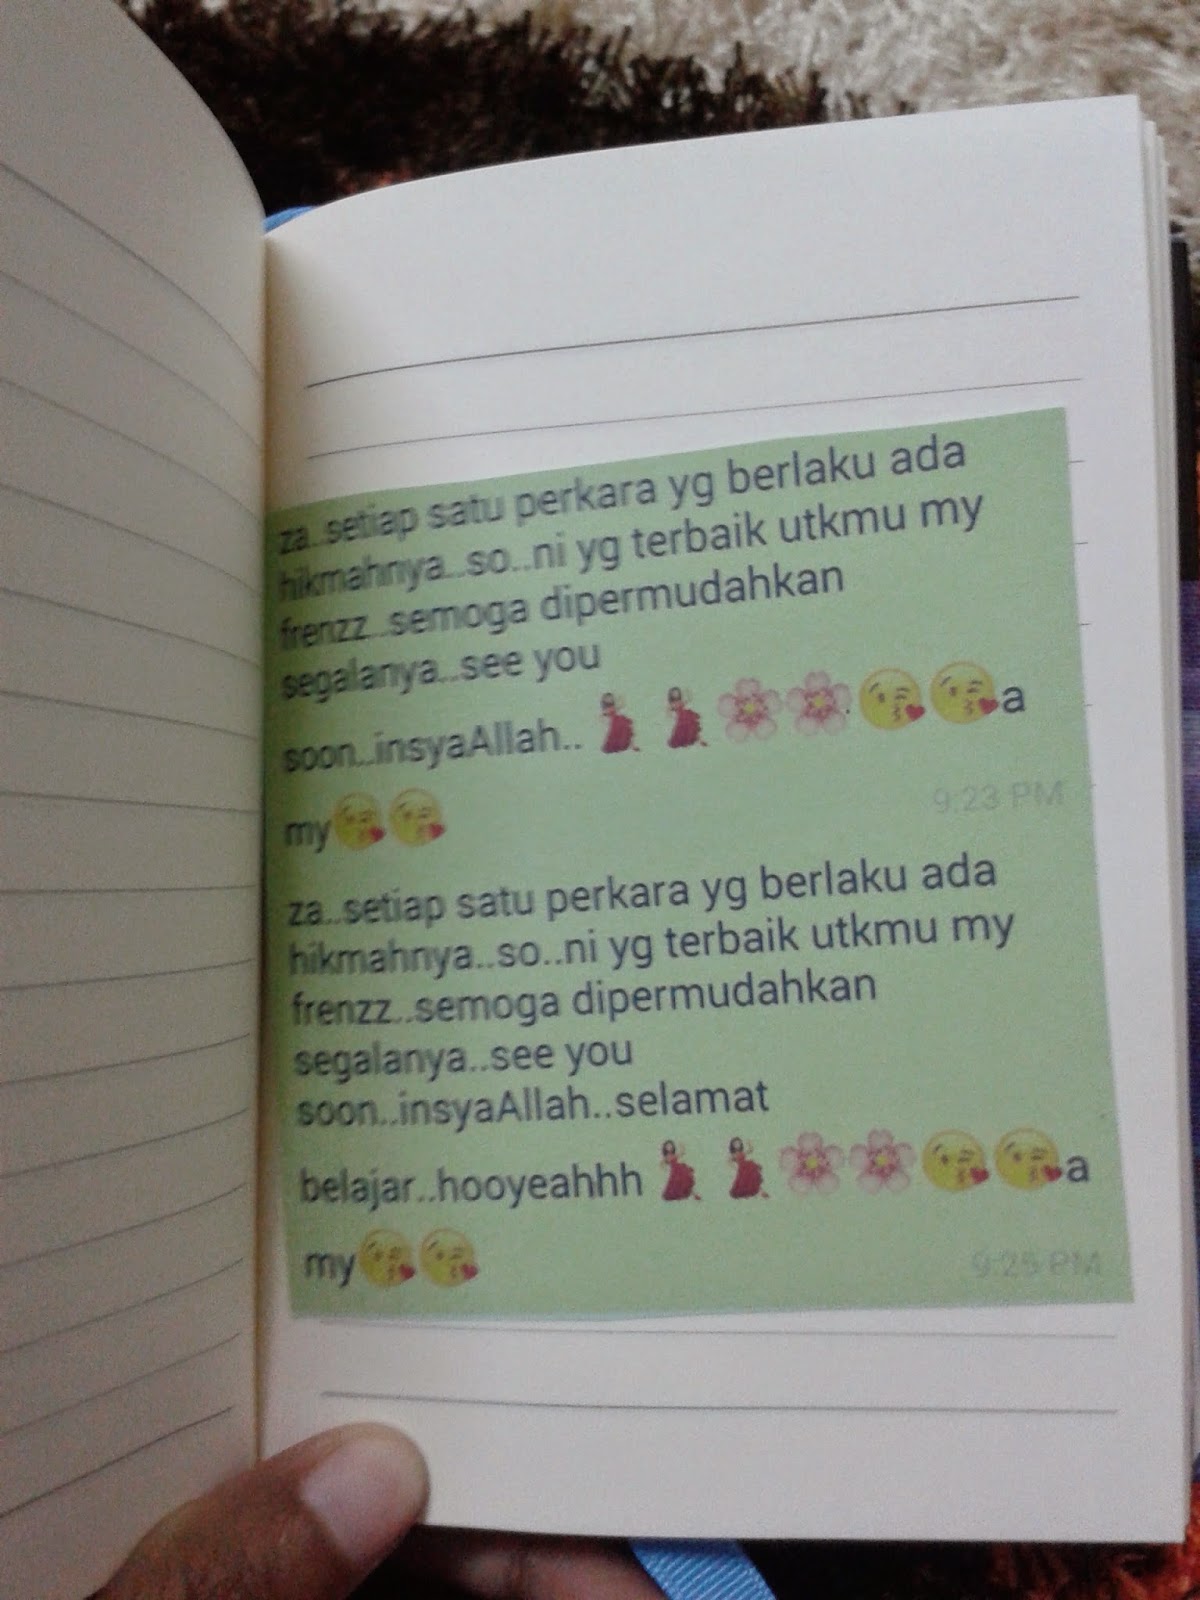 za..setiap satu perkara yg berlaku ada
hikmahnya..so..ni yg terbaik utkmu my
frenzz..semoga dipermudahkan
segalanya..see you
soon..insyaAllah..💃💃🌸🌸😘😘a
my😘😘 9:23 PM
za..setiap satu perkara yg berlaku ada
hikmahnya..so..ni yg terbaik utkmu my
frenzz..semoga dipermudahkan
segalanya..see you
soon..insyaAllah..selamat
belajar..hooyeahhh💃💃🌸🌸😘😘a
my😘😘 9:25 PM